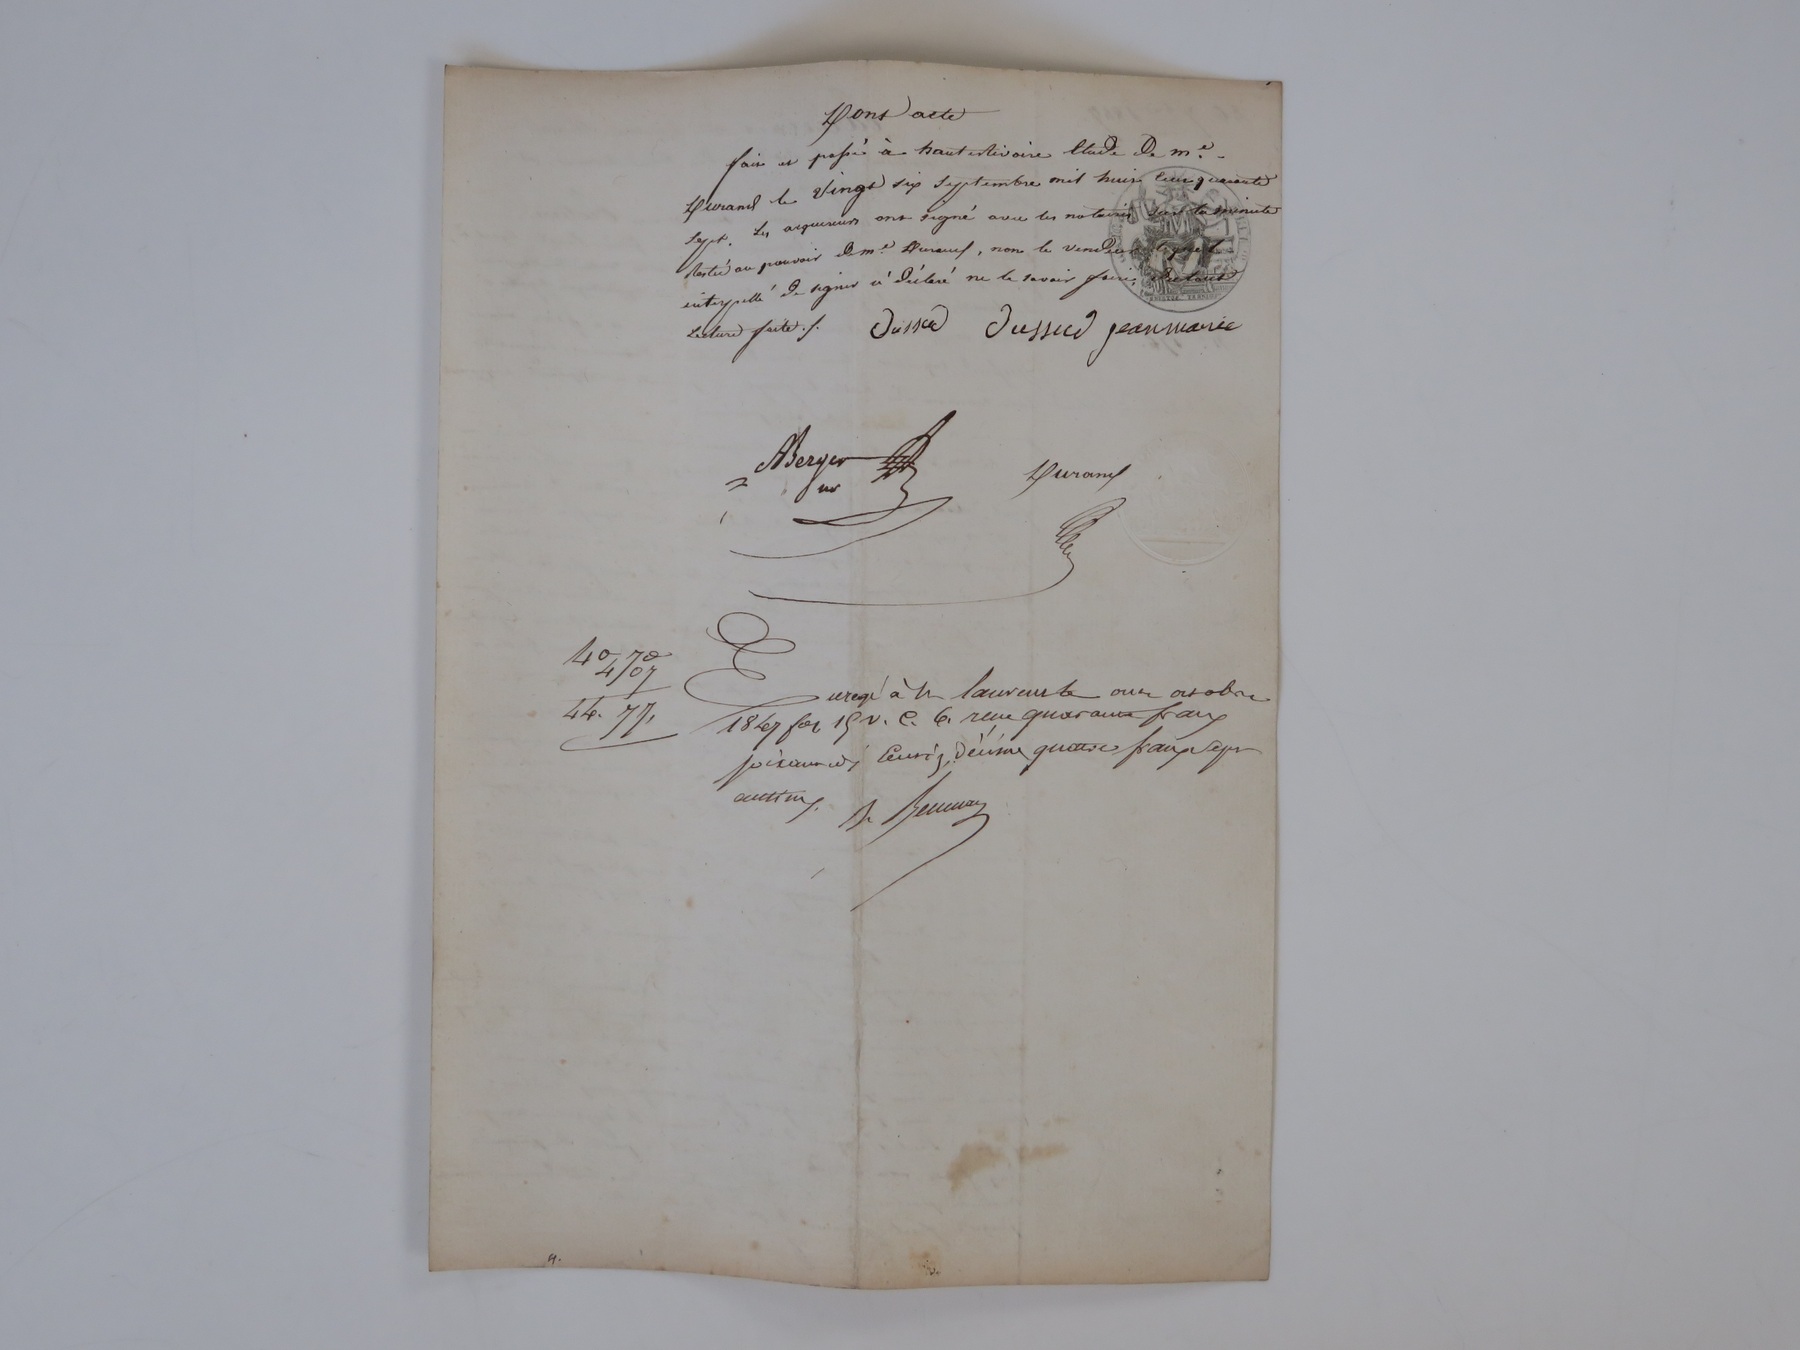 Dont acte
fait et passé à hauterivoire Etude de me.
Durand le vingt six septembre mil huit cent quarante
sept. Les acquereurs ont signé avec les notaires sur la minute
restée au pouvoir de me Durand, non le vendeur lequel
interpellé de signer a déclaré ne le savoir faire,
Lecture faite ./. Dussud Dussud jeanmarie
Berger Durand
nre
40 70
4 07
44. 77.
Enregé à St Laurent le onze octobre
1847 fo 19 v. C. 6. reçu quarante francs
soixante dix centes, décime quatre francs sept
centimes.
4.